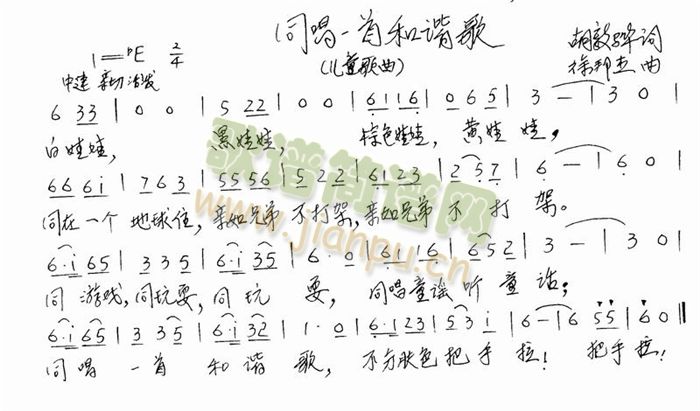 同唱一首和谐歌
(儿童歌曲)
1=♭E 2/4
胡敦骅词
中速 亲切 活泼
徐邦杰曲
6 33 | 0 0 | 5 22 | 0 0 | 6116 | 0 6 5 | 3 — | 3 0 |
白娃娃, 黑娃娃, 棕色娃娃, 黄娃娃,
666i | 7 6 3 | 5556 | 5 2 2 | 6123 | 2 5 7 | 6 — | 6 0 |
同在一个地球住, 亲如兄弟不打架, 亲如兄弟不打架。
6·i 65 | 3 3 5 | 6·i 35 | 6· 0 | 6i i6 | 6 5 2 | 3 — | 3 0 |
同游戏, 同玩耍, 同玩耍, 同唱童谣听童话;
6·i 65 | 3 3 5 | 6·i 32 | 1· 0 | 6·123 | 5 3 i | 6 — | 6 55 | 6 0 ‖
同唱一首和谐歌, 不分肤色把手拉! 把手拉!
歌谱简谱网
www.jianpu.cn